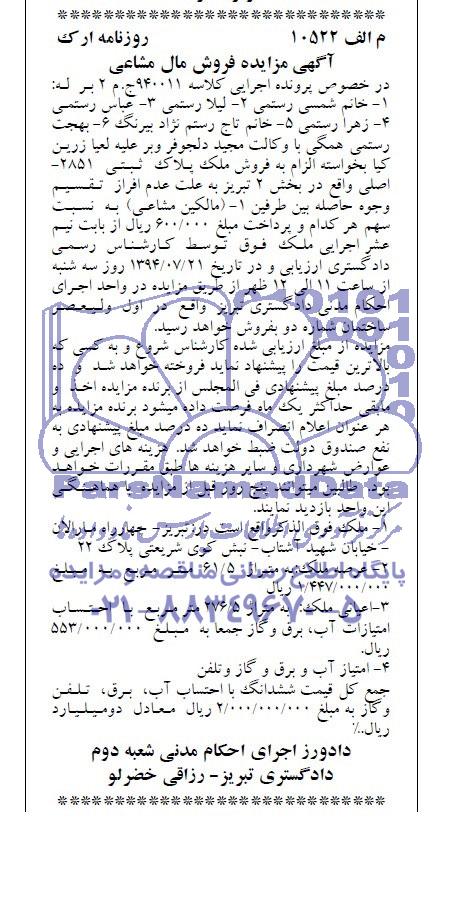 م الف ۱۰۵۲۲ روزنامه ارک
آگهی مزایده فروش مال مشاعی
در خصوص پرونده اجرایی کلاسه ۹۴۰۰۱۱ج.م ۲ بر له:
۱- خانم شمسی رستمی ۲- لیلا رستمی ۳- عباس رستمی
۴- زهرا رستمی ۵- خانم تاج رستم نژاد بیرنگ ۶- بهجت
رستمی همگی با وکالت مجید دلجوفر وبر علیه لعیا زرین
کیا بخواسته الزام به فروش ملک پلاک ثبتی ۲۸۵۱-
اصلی واقع در بخش ۲ تبریز به علت عدم افراز تقسیم
وجوه حاصله بین طرفین ۱- (مالکین مشاعی) به نسبت
سهم هر کدام و پرداخت مبلغ ۶۰۰/۰۰۰ ریال از بابت نیم
عشر اجرایی ملک فوق توسط کارشناس رسمی
دادگستری ارزیابی و در تاریخ ۱۳۹۴/۰۷/۲۱ روز سه شنبه
از ساعت ۱۱ الی ۱۲ ظهر از طریق مزایده در واحد اجرای
احکام مدنی دادگستری تبریز واقع در اول ولیعصر
ساختمان شماره دو بفروش خواهد رسید.
مزایده از مبلغ ارزیابی شده کارشناس شروع و به کسی که
بالاترین قیمت را پیشنهاد نماید فروخته خواهد شد و ده
درصد مبلغ پیشنهادی فی المجلس از برنده مزایده اخذ و
مابقی حداکثر یک ماه فرصت داده میشود برنده مزایده به
هر عنوان اعلام انصراف نماید ده درصد مبلغ پیشنهادی به
نفع صندوق دولت ضبط خواهد شد. هزینه های اجرایی و
عوارض شهرداری و سایر هزینه ها طبق مقررات خواهد
بود. طالبین میتوانند پنج روز قبل از مزایده با هماهنگی
این واحد بازدید نمایند.
۱- ملک فوق الذکر واقع است در: تبریز- چهارراه مارالان
- خیابان شهید آشتاب- نبش کوی شریعتی پلاک ۲۲
۲- عرصه ملک: به متراژ ۶۱/۵ متر مربع به مبلغ
۱/۴۴۷/۰۰۰/۰۰۰ ریال
۳-اعیانی ملک: به متراژ ۲۷۶،۵ متر مربع با احتساب
امتیازات آب، برق و گاز جمعا به مبلغ ۵۵۳/۰۰۰/۰۰۰
ریال.
۴- امتیاز آب و برق و گاز و تلفن
جمع کل قیمت ششدانگ با احتساب آب، برق، تلفن
وگاز به مبلغ ۲/۰۰۰/۰۰۰/۰۰۰ ریال معادل دومیلیارد
ریال./.
دادورز اجرای احکام مدنی شعبه دوم
دادگستری تبریز- رزاقی خضرلو
ParsNamadData
پایگاه اطلاع رسانی مناقصه و مزایده
۰۲۱-۸۸۳۴۹۶۷۰-۵